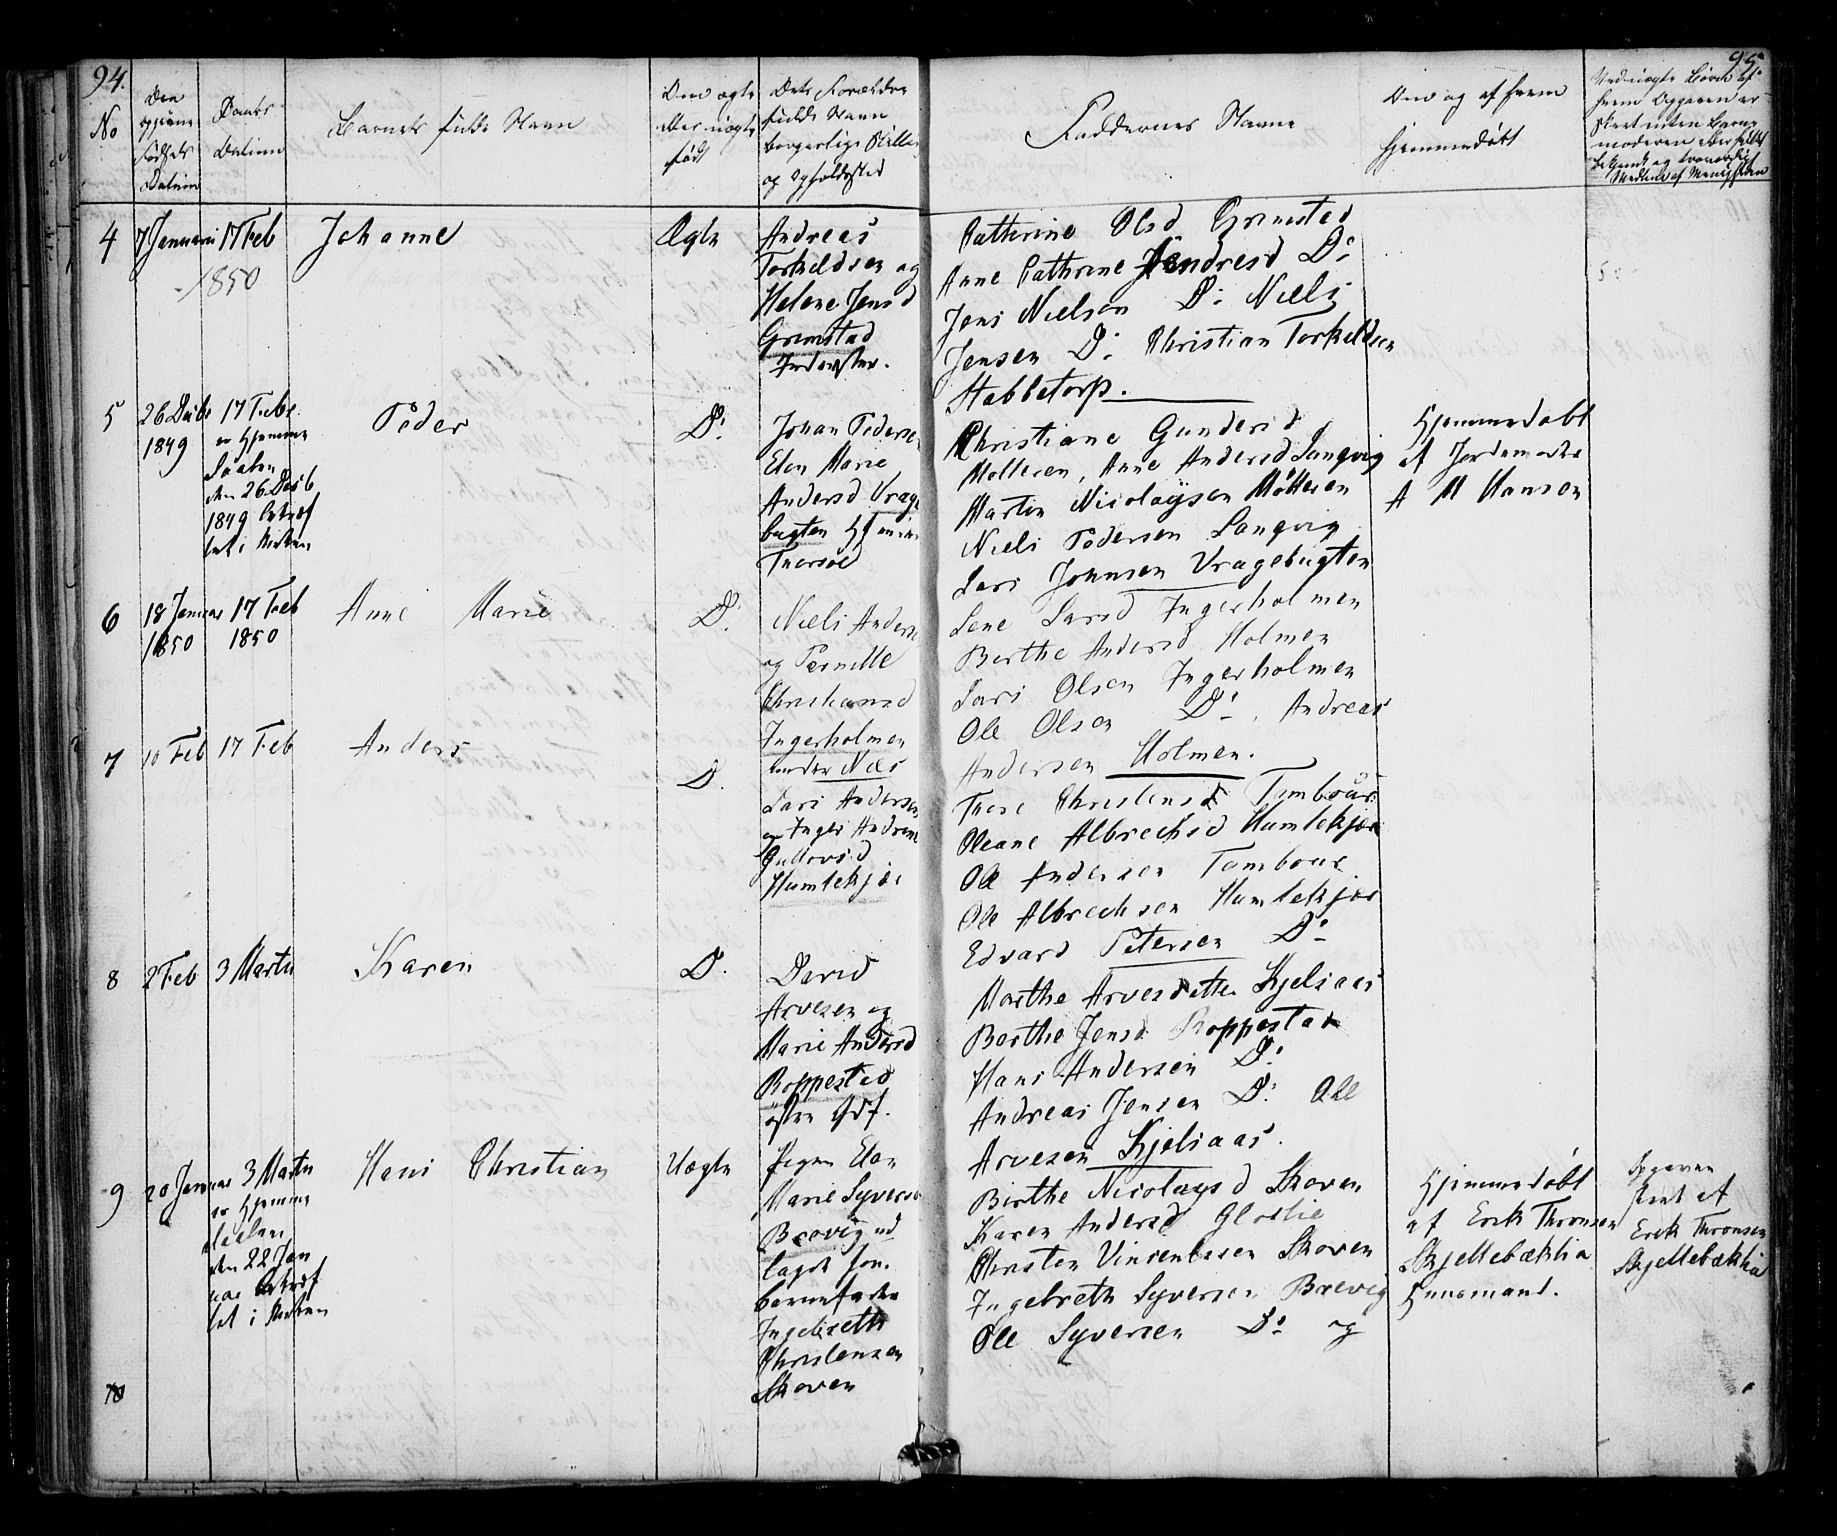 94.
95
No
Den
opgivne
Fødsels
Datum
Daabs
Datum
Barnets fulde Navn
Om ægte
eller uægte
født
Dets Forældre
fulde Navn
borgerlige Stilling
og Opholdssted
Faddernes Navne
Om og af hvem
hjemmedøbt
Ved uægte Børn af
hvem Opgaven er
skeet enten Barne
moderen eller
bekjendt og troværdigt
Medlem af Menigheden
4
7 Januari
17 Feb
1850
Johanne
Ægte
Andreas
Torkeldsen og
Helene Jensd
Grimstad
Inderster.
Cathrine Olsd Grimstad
Anne Cathrine Andresd Do
Jens Nielsen Do Niels
Jensen Do Christian Torkeldsen
Stabbetorp.
5
26 Decbr
1849
17 Febr
er hjemme
døbt
den 26 Decb
1849
i Kirken
Peder
Do
Johan Peders
Elen Marie
Andersd Vrage
bugten
Thorsøe
Christiane Gundersd
Mølleren, Anne Andersd Langvig
Martin Nicolaysen Mølleren
Niels Pedersen Langvig
Lars Johnsen Vragebugten
Hjemmedøbt
af Jordemoder
A M Hansen
6
18 Januar
1850
17 Feb
1850
Anne Marie
Do
Niels Anders
og Pernille
Christiansd
Ingerholmen
under Næs
Lene Larsd Ingerholmen
Berthe Andersd Holmen
Lars Olsen Ingerholmen
Ole Olsen Do, Andreas
Andersen Holmen.
7
10 Feb
17 Feb
Anders
D.
Lars Andersen
og Inger Andrine
Gulovsd
Humlekjær
There Christensd Tambour
Oleane Albrechsd Humlekjær
Ole Andersen Tambour
Ole Albrechsen Humlekjær
Edvard Petersen Do
8
2 Feb
3 Marts
Karen
D.
David
Arvesen og
Marie Andersd
Roppestad
østre Grf.
Marthe Arvesdatter Kjelsaas
Berthe Jensd Roppestad
Hans Andersen Do
Andreas Jensen Do Ole
Arvesen Kjelsaas.
9
20 Januar
3 Marts
er hjemme
døbt
den 22 Jan
i Kirken
Hans Christian
Uægte
Pigen Elen
Marie Syvers
Brevig ud
lagt for
barnefader
Ingebreth
Christensen
Skoven
Birthe Nicolaysd Skoven
Karen Andersd Gloslie
Christen Vincentssen Skoven
Ingebreth Syversen Brevig
Ole Syversen Do og
Hjemmedøbt
af Erik Thronsen
Skjellebækklia
Huusmand.
Opgaven
skeet af
Erik Thronsen
Skjellebæklia
10